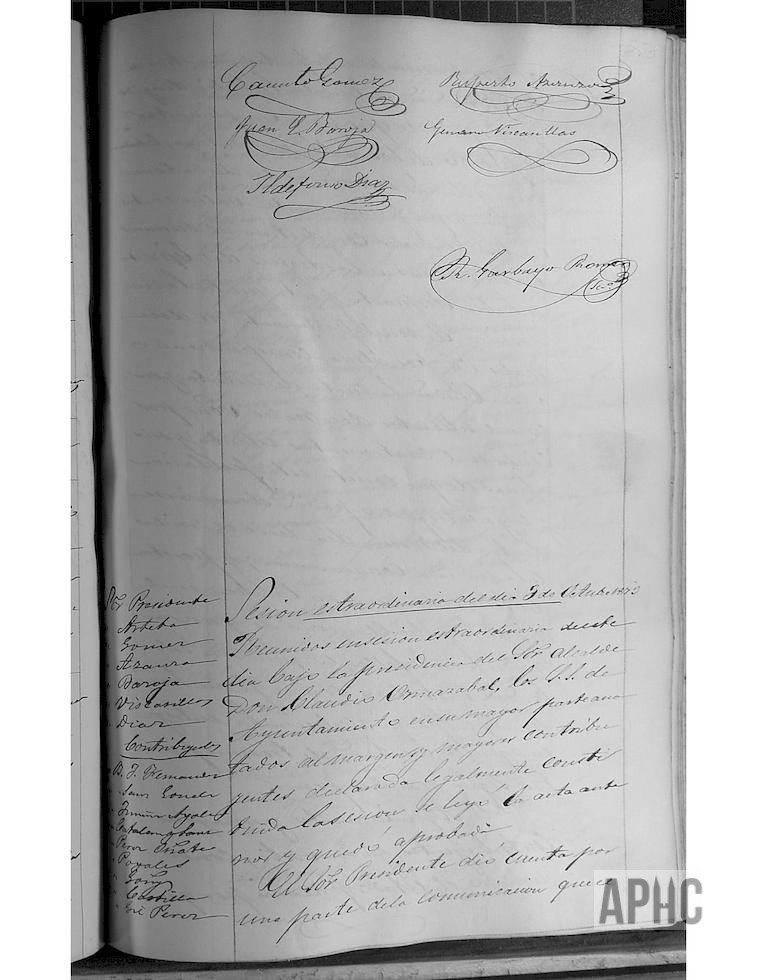 Canuto Gomez
Ruperto Azanza
Juan L. Baroja
Genaro Viscasillas
Ildefonso Diaz
Garbayo
Scro
Sor Presidente
Arteta
Gomez
Azanza
Baroja
Viscasillas
Diaz
Contribuyentes
B. J. Fernandez
Sanz
Fermin Ayala
Catalan y Sanz
Perez Oñate
Poyales
Goñi
Castilla
José Perez
Sesion estraordinaria del dia 3 de Octubre
Reunidos en sesion estraordinaria de este
dia bajo la presidencia del Sor Alcalde
Don Claudio Ormazabal, los S.S. de
Ayuntamiento en su mayor parte ano
tados al margen, y mayores contribu
yentes declarada legalmente consti
tuida la sesion se leyó la acta ante
rior y quedó aprobada
El Sor Presidente dió cuenta por
una parte de la comunicacion que
APHC